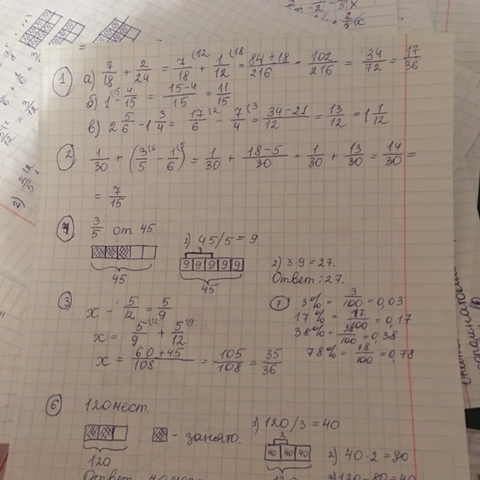 ① а) 7/18 + 2/24 = 7/18 (12 + 1/12 (18 = 84+18/216 = 102/216 = 34/72 = 17/36
б) 1 (15 - 4/15 = 15-4/15 = 11/15
в) 2 5/6 - 1 3/4 = 17/6 - 7/4 (3 = 34-21/12 = 13/12 = 1 1/12
② 1/30 + (3/5 (6 - 1/6 (5) = 1/30 + 18-5/30 = 1/30 + 13/30 = 14/30 =
= 7/15
④ 3/5 от 45
1) 45/5 = 9
3
9 9 9 9 9
45
45
2) 3·9=27.
Ответ: 27.
③ x - 5/12 = 5/9
x = 5/9 (12 + 5/12 (9
x = 60+45/108 = 105/108 = 35/36
⑦ 3% = 3/100 = 0,03
17% = 17/100 = 0,17
38% = 38/100 = 0,38
78% = 78/100 = 0,78
⑥ 120 мест.
- занято.
120
1) 120/3 = 40
2
40 40 40
2) 40·2 = 80
3) 120-80 = 40
Ответ: 40